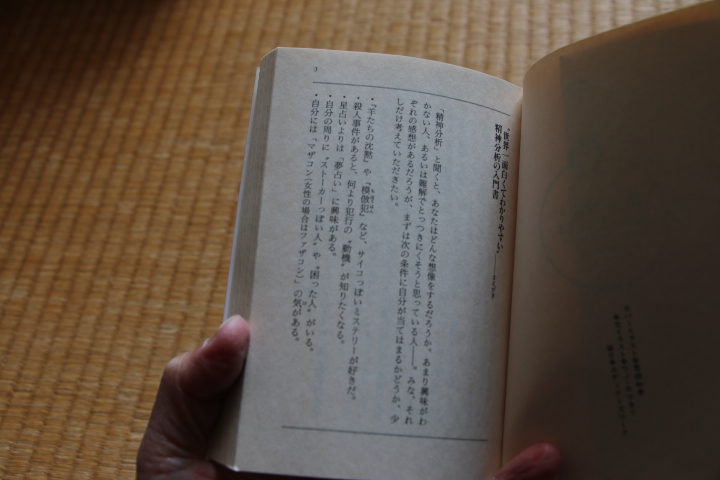 “世界一面白くてわかりやすい”
精神分析の入門書――まえがき
「精神分析」と聞くと、あなたはどんな想像をするだろうか。あまり興味がわ
かない人、あるいは難解でとっつきにくそうと思っている人――。みな、それ
ぞれの感想があるだろうが、まずは次の条件に自分が当てはまるかどうか、少
しだけ考えていただきたい。
・『羊たちの沈黙』や『模倣犯』など、サイコっぽいミステリーが好きだ。
・殺人事件があると、何より犯行の“動機”が知りたくなる。
・星占いよりは「夢占い」に興味がある。
・自分の周りに“ストーカーっぽい人”や“困った人”がいる。
・自分には「マザコン（女性の場合はファザコン）」の気がある。
3